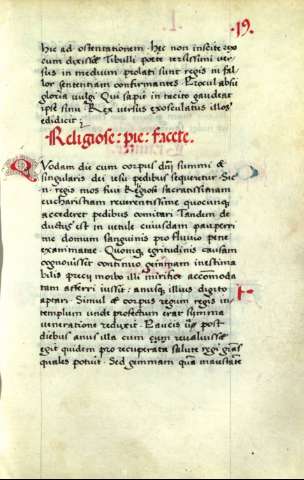 19.
hic ad ostentationem. Hec non inscite eo
cum dixisset Tibulli poete tersissimi ver
sus in medium prolati sunt regis ni fal
lor sententiam confirmantes. Procul absit
gloria vulgi. Qui sapit in tacito gaudeat
ipse sinu. Rex versus exosculatus illos
edidicit;
Religiose: pie: facete.
Quodam die cum corpus dni summi &
singularis dei iesu pedibus sequeretur. Sic
n. regis mos fuit &
eucharistiam reverentissime quocunq
accederet pedibus comitari. Tandem de
ductus est in vetule cuiusdam pauperri
me domum sanguinis pro fluvio pene
exanimatae. Quoniq egritudinis causam
cognovisset continuo gemmam inestima
bilis precij morbo illi mirifice accommoda
tam afferri iussit: anusq illius digito
aptari. Simul & corpus regum regis in
templum unde profectum erat summa
veneratione reduxit. Paucis post
diebus anus illa cum revaluisset
egit quidem pro recuperata salute regi gras
quales potuit. Sed gemmam qua maiestate